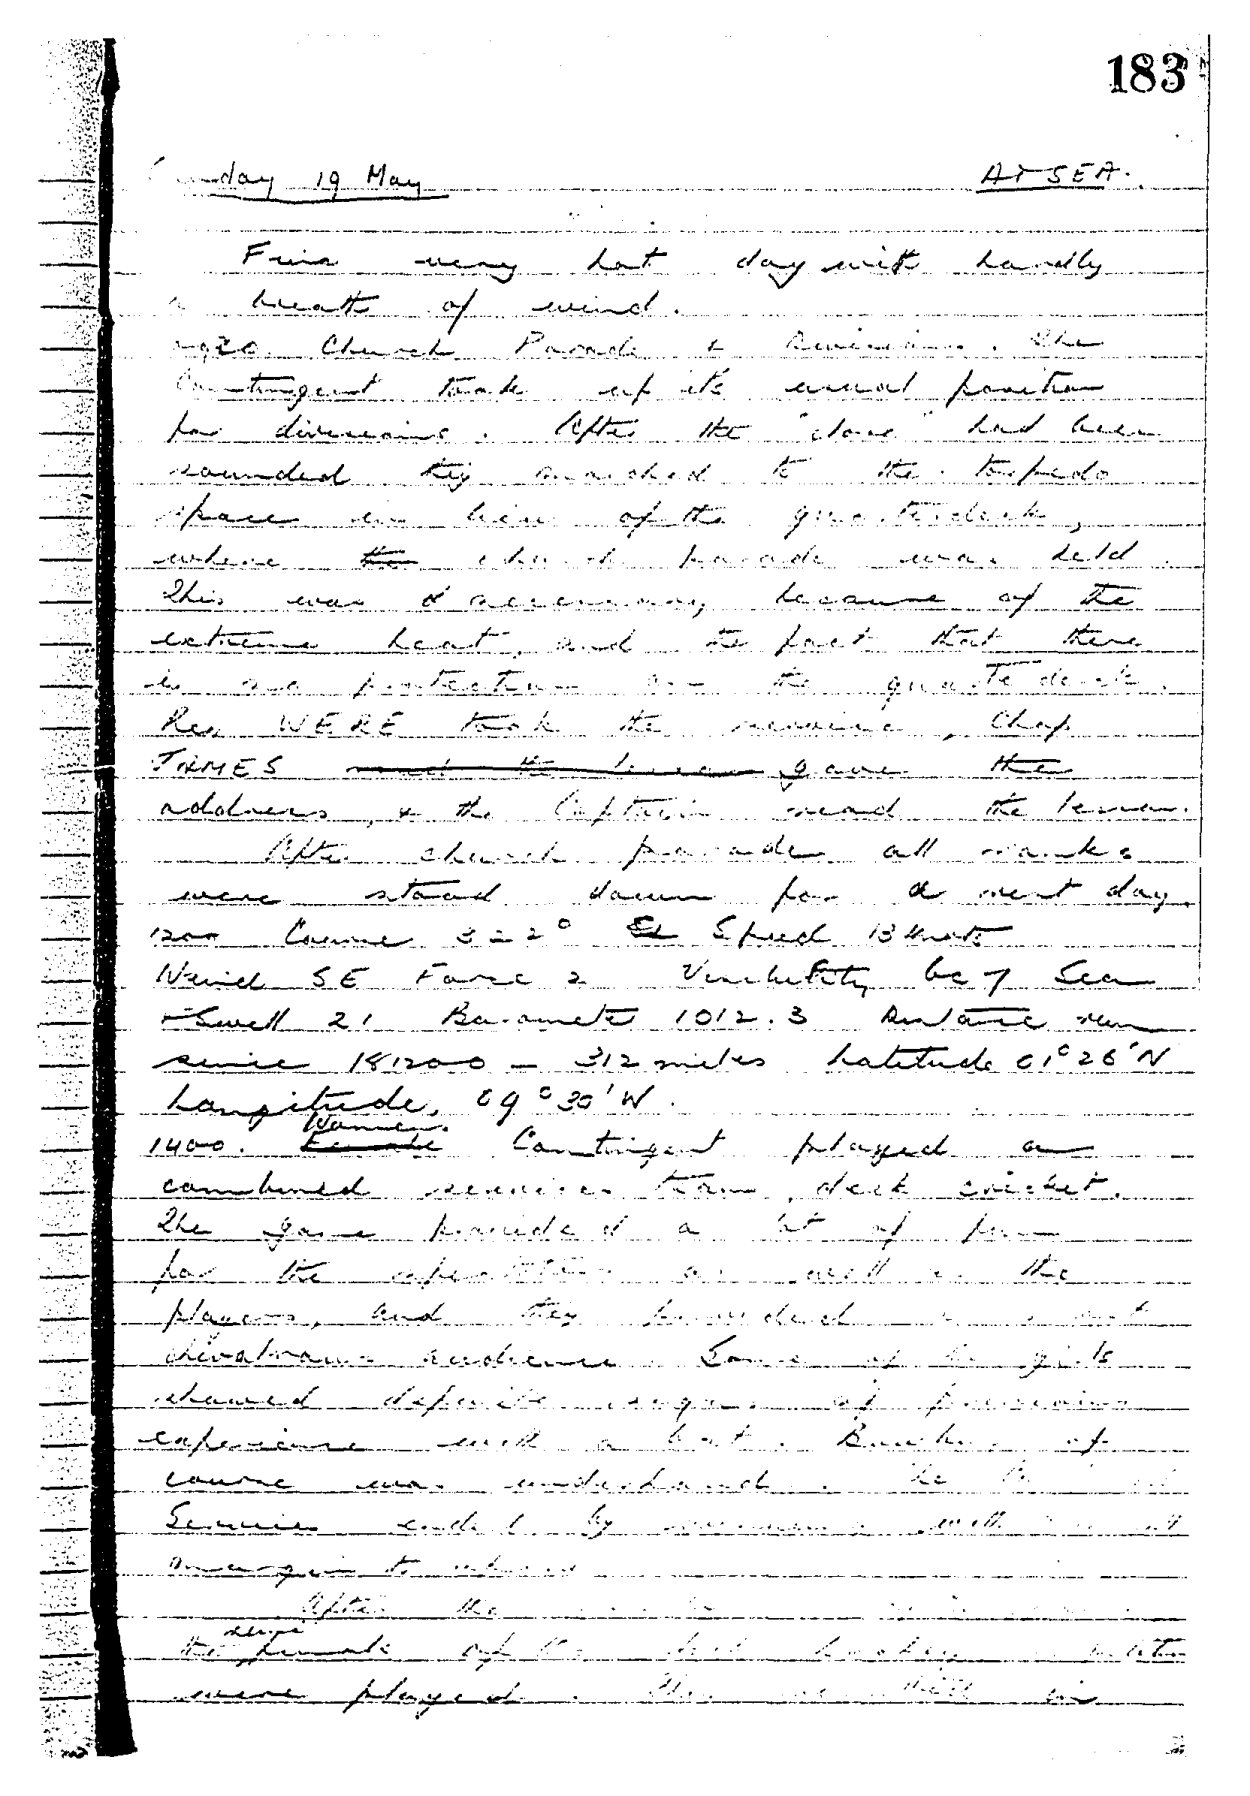 183
Sunday 19 May AT SEA.
Fine very hot day with hardly
a breath of wind.
0920 Church Parade & divisions. The
Contingent took up its usual position
for divisions. After the "close" had been
sounded they marched to the torpedo
space in lieu of the quarterdeck,
where the church parade was held.
This was necessary because of the
extreme heat, and the fact that there
is no protection on the quarterdeck.
Rev WERE took the service, Chap
JAMES read the lesson gave the
address, & the Captain read the lesson.
After church parade all ranks
were stood down for a rest day.
1200 Course 322° Speed 13 knots
Wind SE Force 2 Visibility bc 7 Sea
& Swell 21 Barometer 1012.3 Distance run
since 181200 – 312 miles Latitude 01°26'N
Longitude, 09°30'W.
Women.
1400. Female Contingent played a
combined services team, deck cricket.
The game provided a lot of fun
for the spectators as well as the
players, and they provided
chivalrous audience. Some of the girls
showed definite signs of previous
experience with a bat. Bowling of
course was underhand. The
Services ended by
margin to
After the
the of the deck hockey
were played. The in